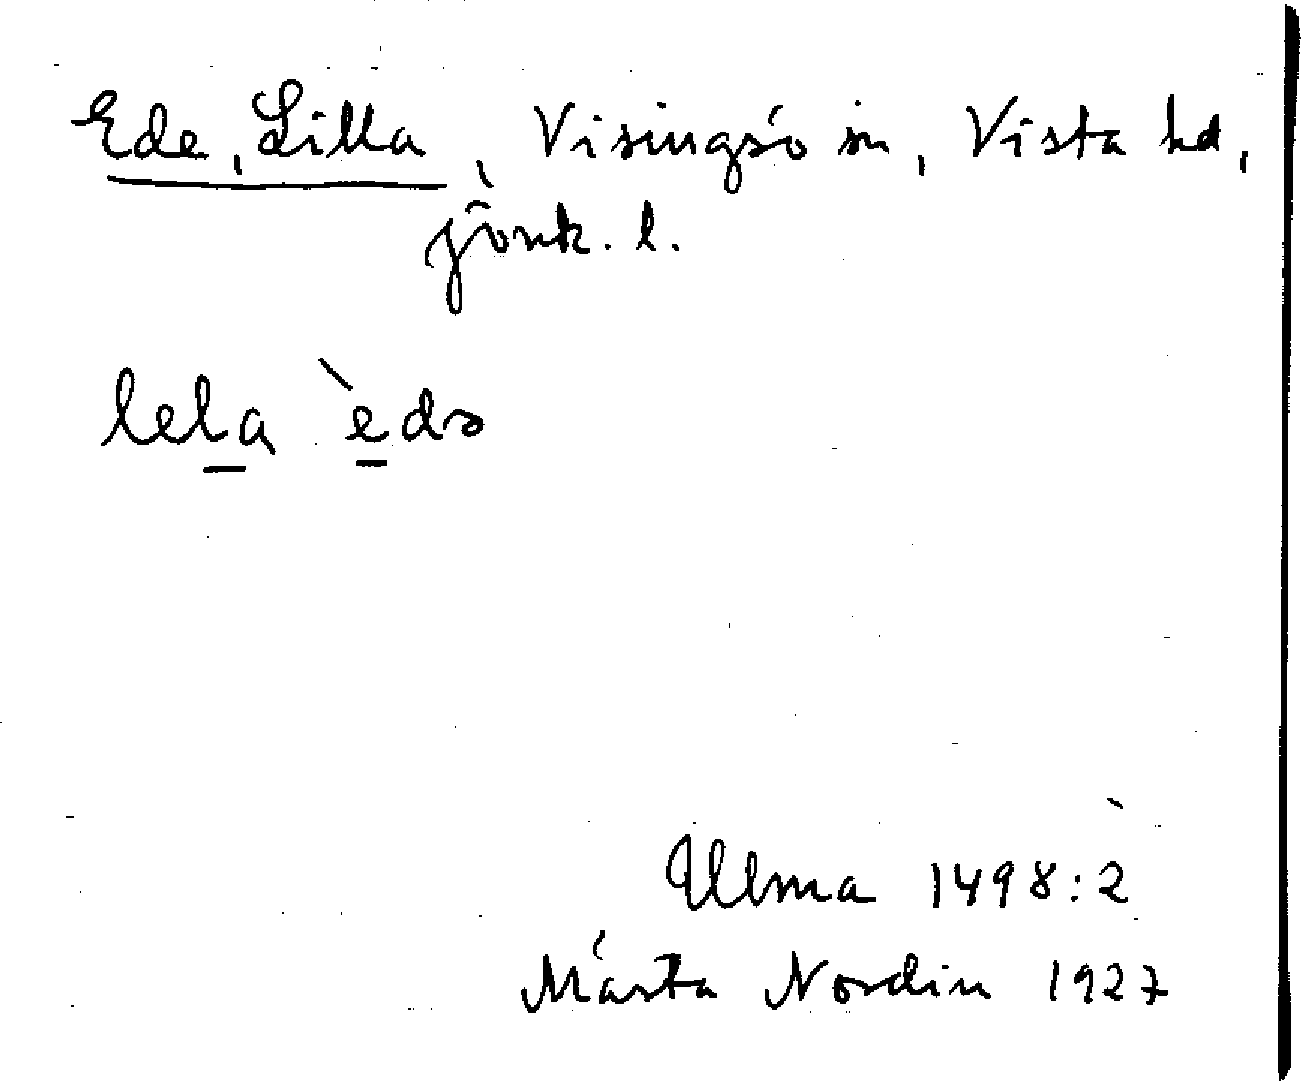 Ede, Lilla, Visingsö sn, Vista hd,
Jönk. l.
lela `èdə
Ulma 1498:2
Märta Nordin 1927